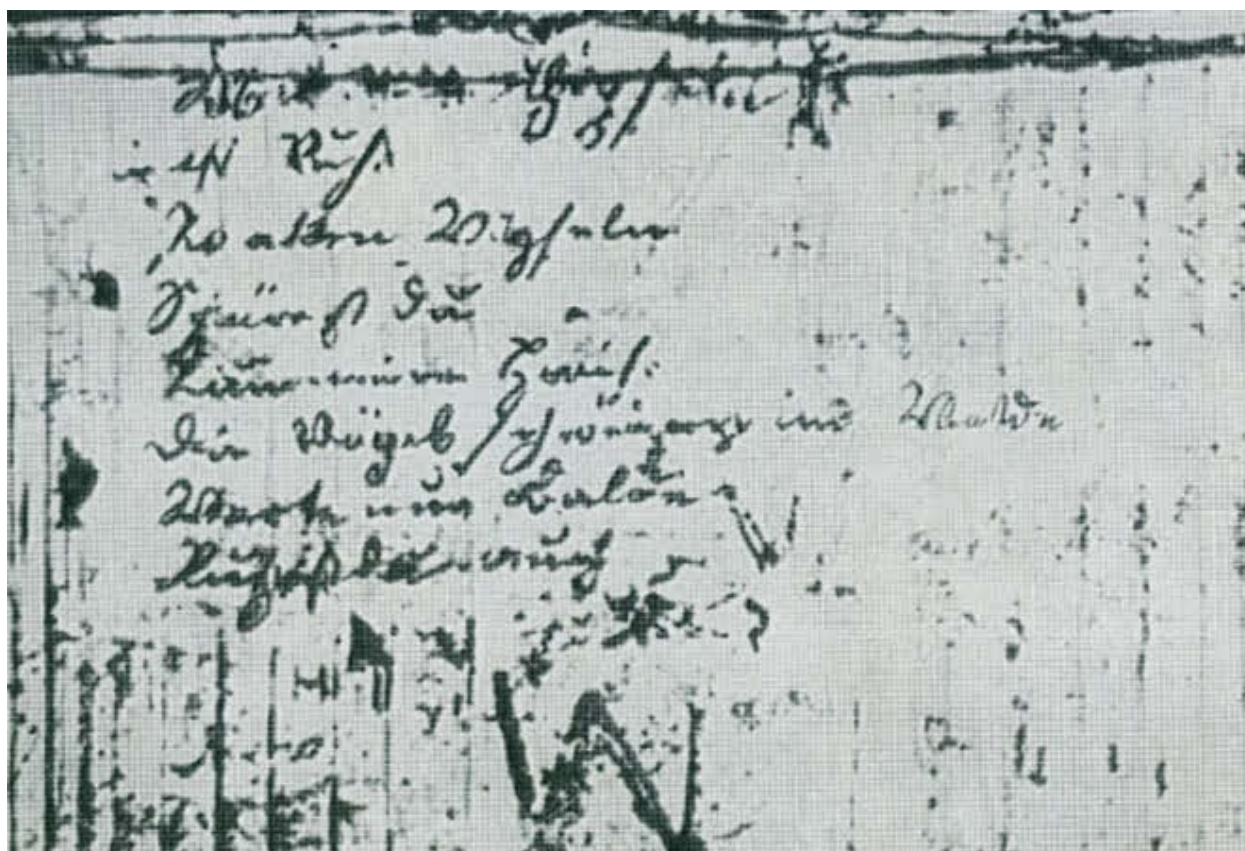 Über allen Gipfeln
ist Ruh
In allen Wipfeln
Spürest du
Kaum einen Hauch.
die Vögel schweigen im Walde
Warte nur Balde
Ruhest du auch